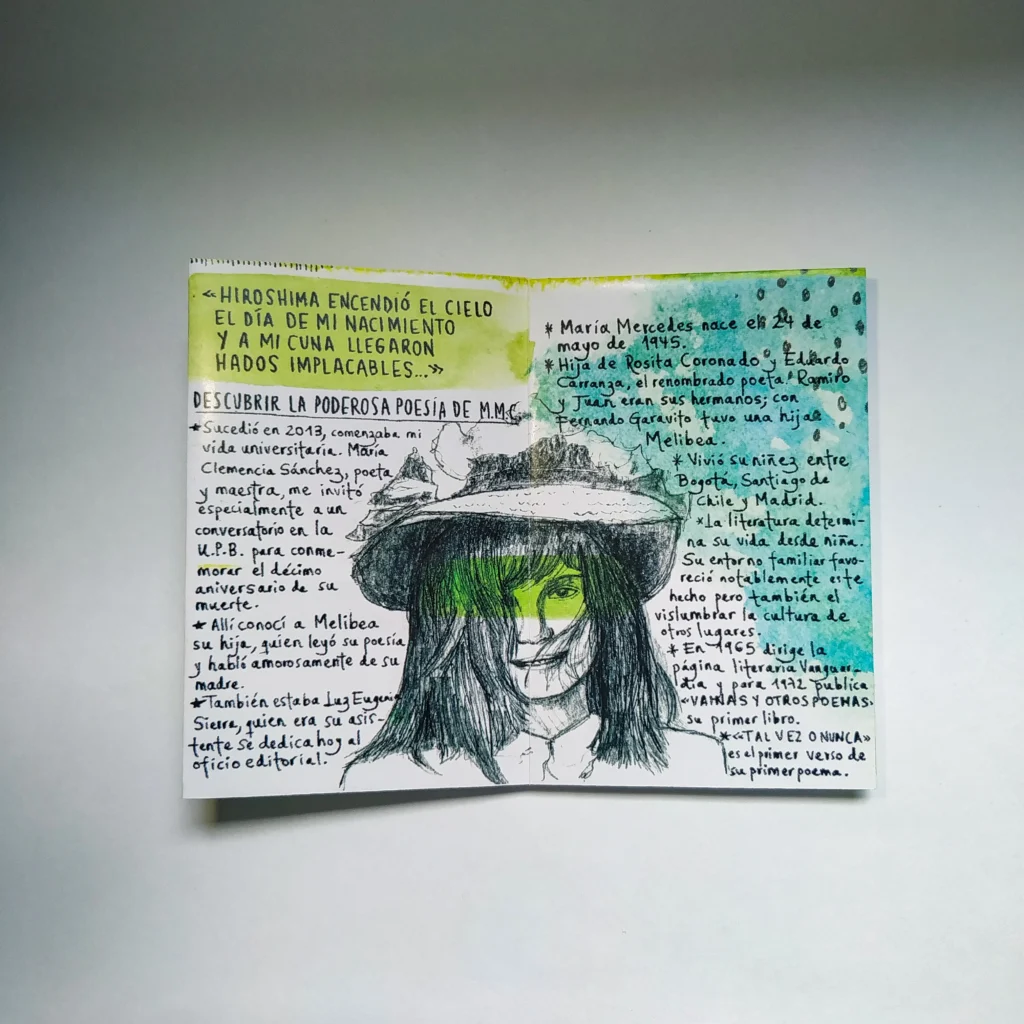 «HIROSHIMA ENCENDIÓ EL CIELO
EL DÍA DE MI NACIMIENTO
Y A MI CUNA LLEGARON
HADOS IMPLACABLES...»
DESCUBRIR LA PODEROSA POESÍA DE M.M.C.
*Sucedió en 2013, comenzaba mi
vida universitaria. María
Clemencia Sánchez, poeta
y maestra, me invitó
especialmente a un
conversatorio en la
U.P.B. para conme-
morar el décimo
aniversario de su
muerte.
* Allí conocí a Melibea
su hija, quien leyó su poesía
y habló amorosamente de su
madre.
*También estaba Luz Eugenia
Sierra, quien era su asis-
tente se dedica hoy al
oficio editorial.
* María Mercedes nace el 24 de
mayo de 1945.
* Hija de Rosita Coronado y Eduardo
Carranza, el renombrado poeta. Ramiro
y Juan eran sus hermanos; con
Fernando Garavito tuvo una hija:
Melibea.
* Vivió su niñez entre
Bogotá, Santiago de
Chile y Madrid.
*La literatura determi-
na su vida desde niña.
Su entorno familiar favo-
reció notablemente este
hecho pero también el
vislumbrar la cultura de
otros lugares.
* En 1965 dirige la
página literaria Vanguar-
dia y para 1972 publica
«VAINAS Y OTROS POEMAS»
su primer libro.
*«TAL VEZ O NUNCA»
es el primer verso de
su primer poema.